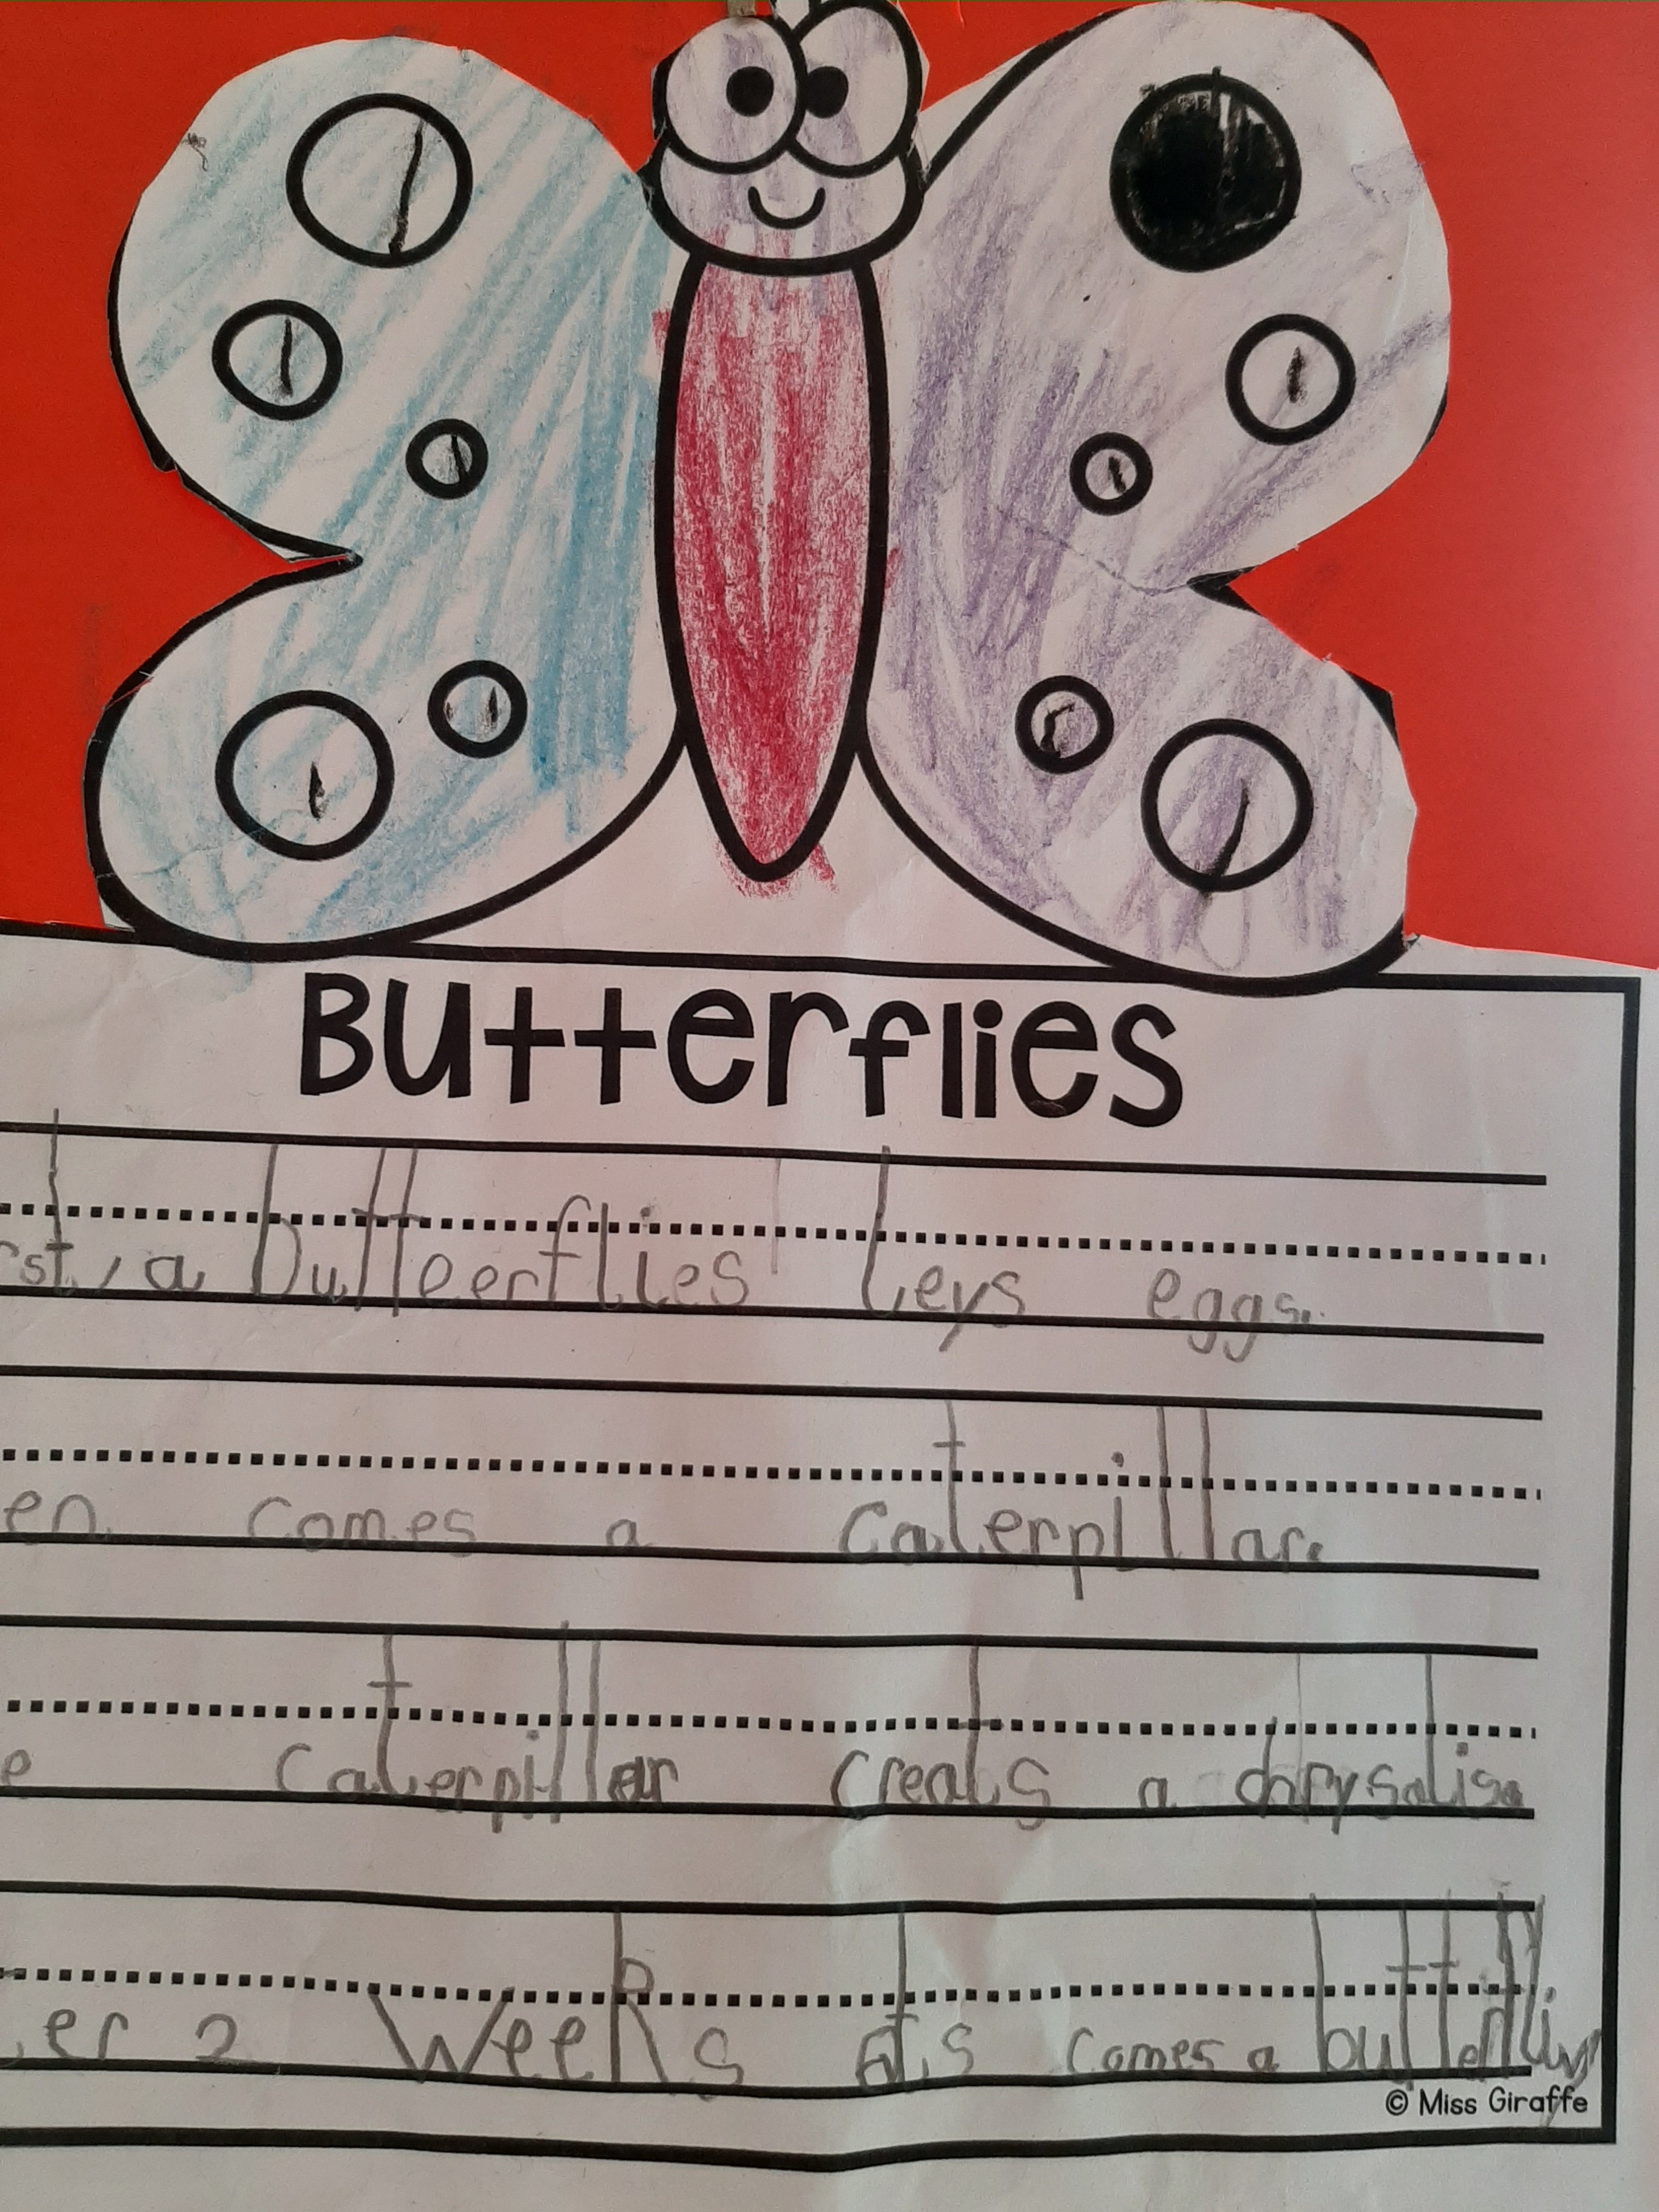 Butterflies
rst, a butteerflies leys eggs.
en comes a caterpillar.
e caterpillar creats a chrysalis.
er 2 weeks comes a butterfliy
© Miss Giraffe